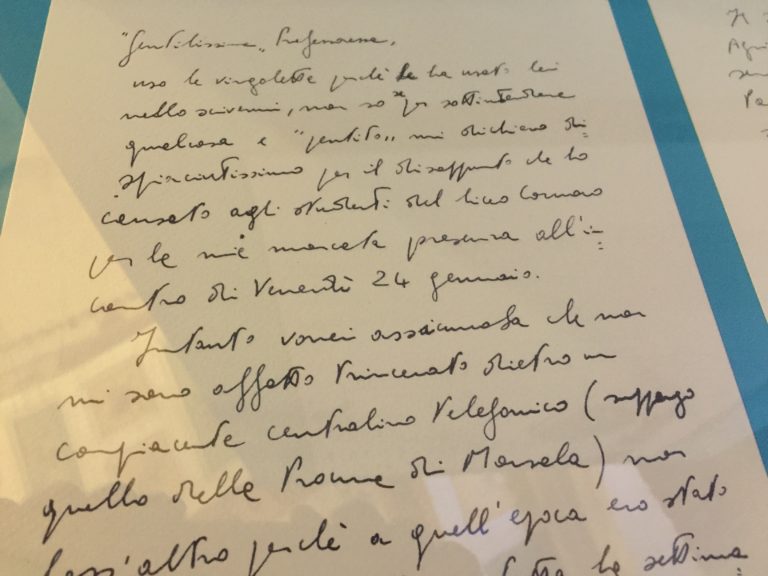 "Gentilissima" Professoressa,
uso le virgolette perchè le ha usato lei
nello scrivermi, non so se per sottintendere
qualcosa e "pentito" mi dichiaro di=
spiacentissimo per il disappunto che ho
causato agli studenti del liceo Cornaro
per la mia mancata presenza all'in=
contro di Venerdì 24 gennaio.
Intanto vorrei assicurarla che non
mi sono affatto trincerato dietro un
compiacente centralino telefonico (suppongo
quello della Procura di Marsala) non
foss'altro perchè a quell'epoca ero stato
la settima=